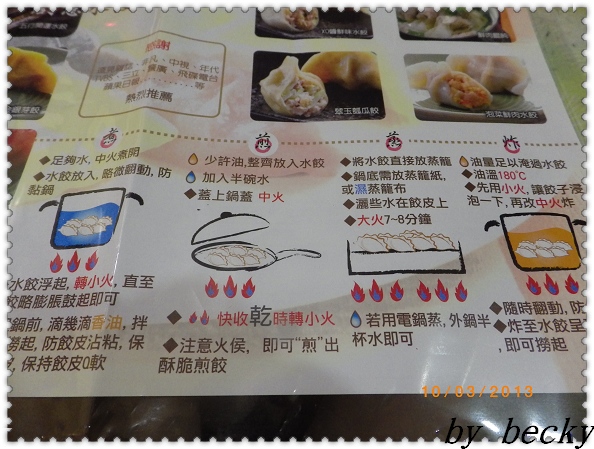 XO醬鮮味水餃
鮮肉水餃
感謝
東森電台、非凡、中視、年代
民視、三立、寶島、飛碟電台
蘋果日報……………等
熱烈推薦
翠玉瓠瓜餃
泡菜鮮肉水餃
煮
◆足夠水,中火煮開
◆水餃放入,略微翻動,防
黏鍋
水餃浮起,轉小火,直至
餃略膨脹鼓起即可
鍋前,滴幾滴香油,拌
撈起,防餃皮沾粘,保
,保持餃皮Q軟
煎
少許油,整齊放入水餃
加入半碗水
◆蓋上鍋蓋 中火
◆ 快收乾時轉小火
◆注意火侯,即可"煎"出
酥脆煎餃
蒸
◆將水餃直接放蒸籠
◆鍋底需放蒸籠紙,
或濕蒸籠布
◆灑些水在餃皮上
◆大火7~8分鐘
若用電鍋蒸,外鍋半
杯水即可
炸
油量足以淹過水餃
◆油溫180℃
◆先用小火,讓餃子浸
泡一下,再改中火炸
◆隨時翻動,防
◆炸至水餃呈
,即可撈起
10/03/2013
by becky